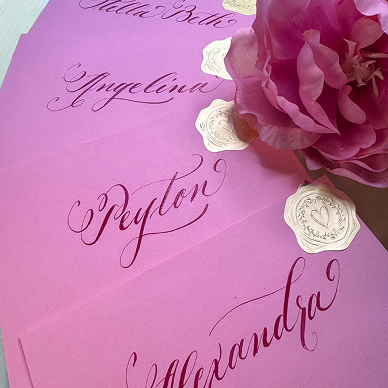 Stella Beth
Angelina
Peyton
Alexandra